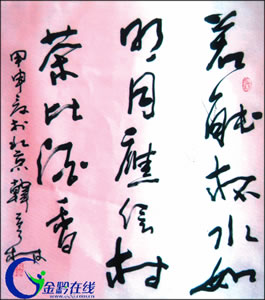 若能杯水如
明月應信村
茶比酒香
甲申
於北京 韓
金黔在线